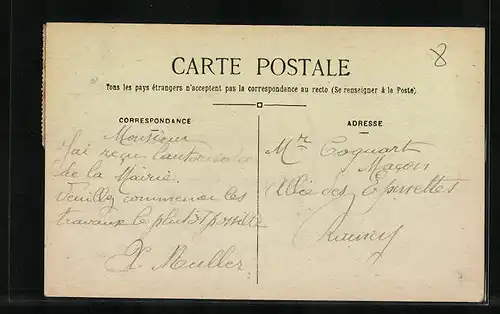 8
CARTE POSTALE
Tous les pays étrangers n'acceptent pas la correspondance au recto (Se renseigner à la Poste)
CORRESPONDANCE
Monsieur
J'ai reçu l'autorisation
de la Mairie.
Veuillez commencer les
travaux le plutôt possible
Muller
ADRESSE
Mr Coquart
Maçon
Allée des Epinettes
Raincy